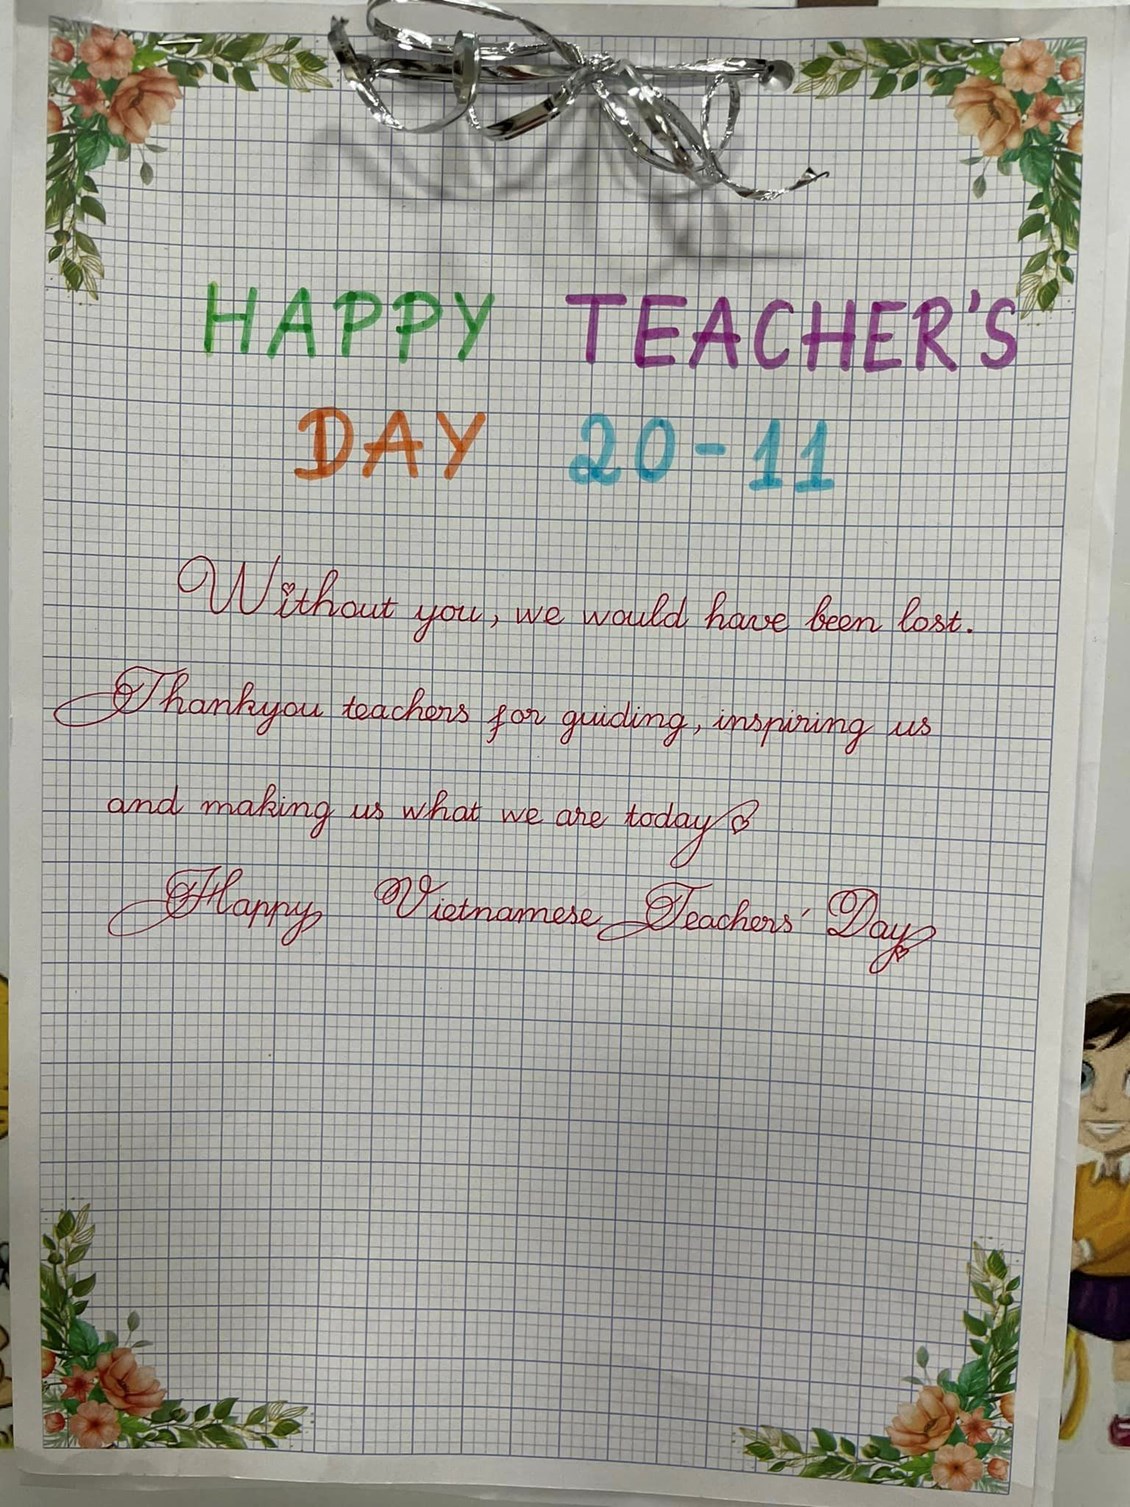 HAPPY TEACHER'S
DAY 20-11
Without you, we would have been lost.
Thankyou teachers for guiding, inspiring us
and making us what we are today
Happy Vietnamese Teachers' Day